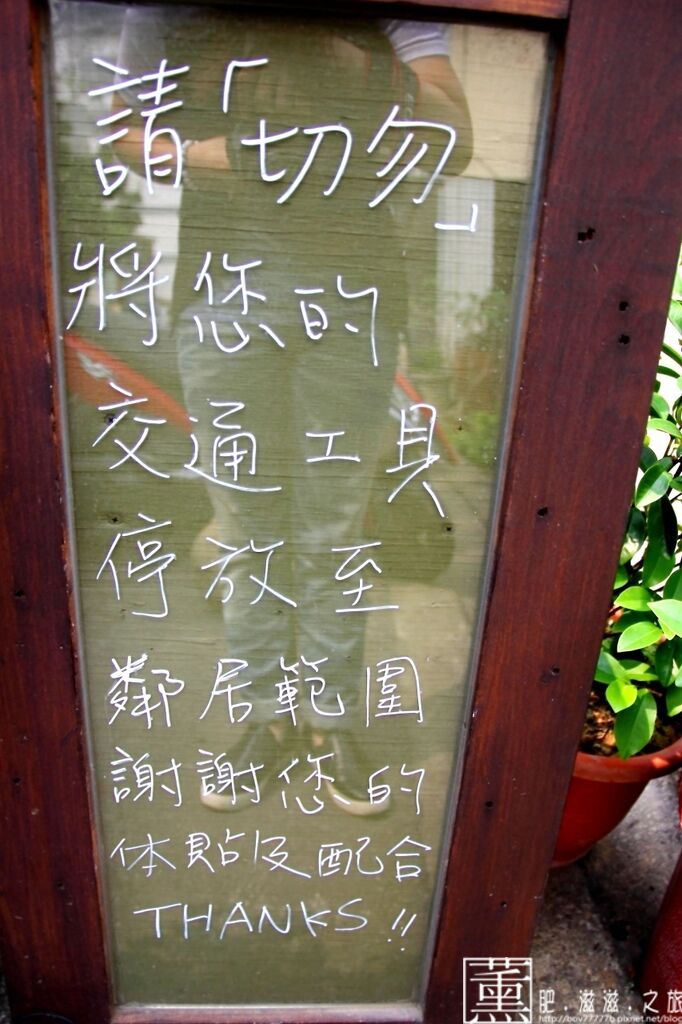 請「切勿」
將您的
交通工具
停放至
鄰居範圍
謝謝您的
体貼及配合
THANKS!!
薰 肥.滋滋.之旅
http://bov77777b.pixnet.net/blog